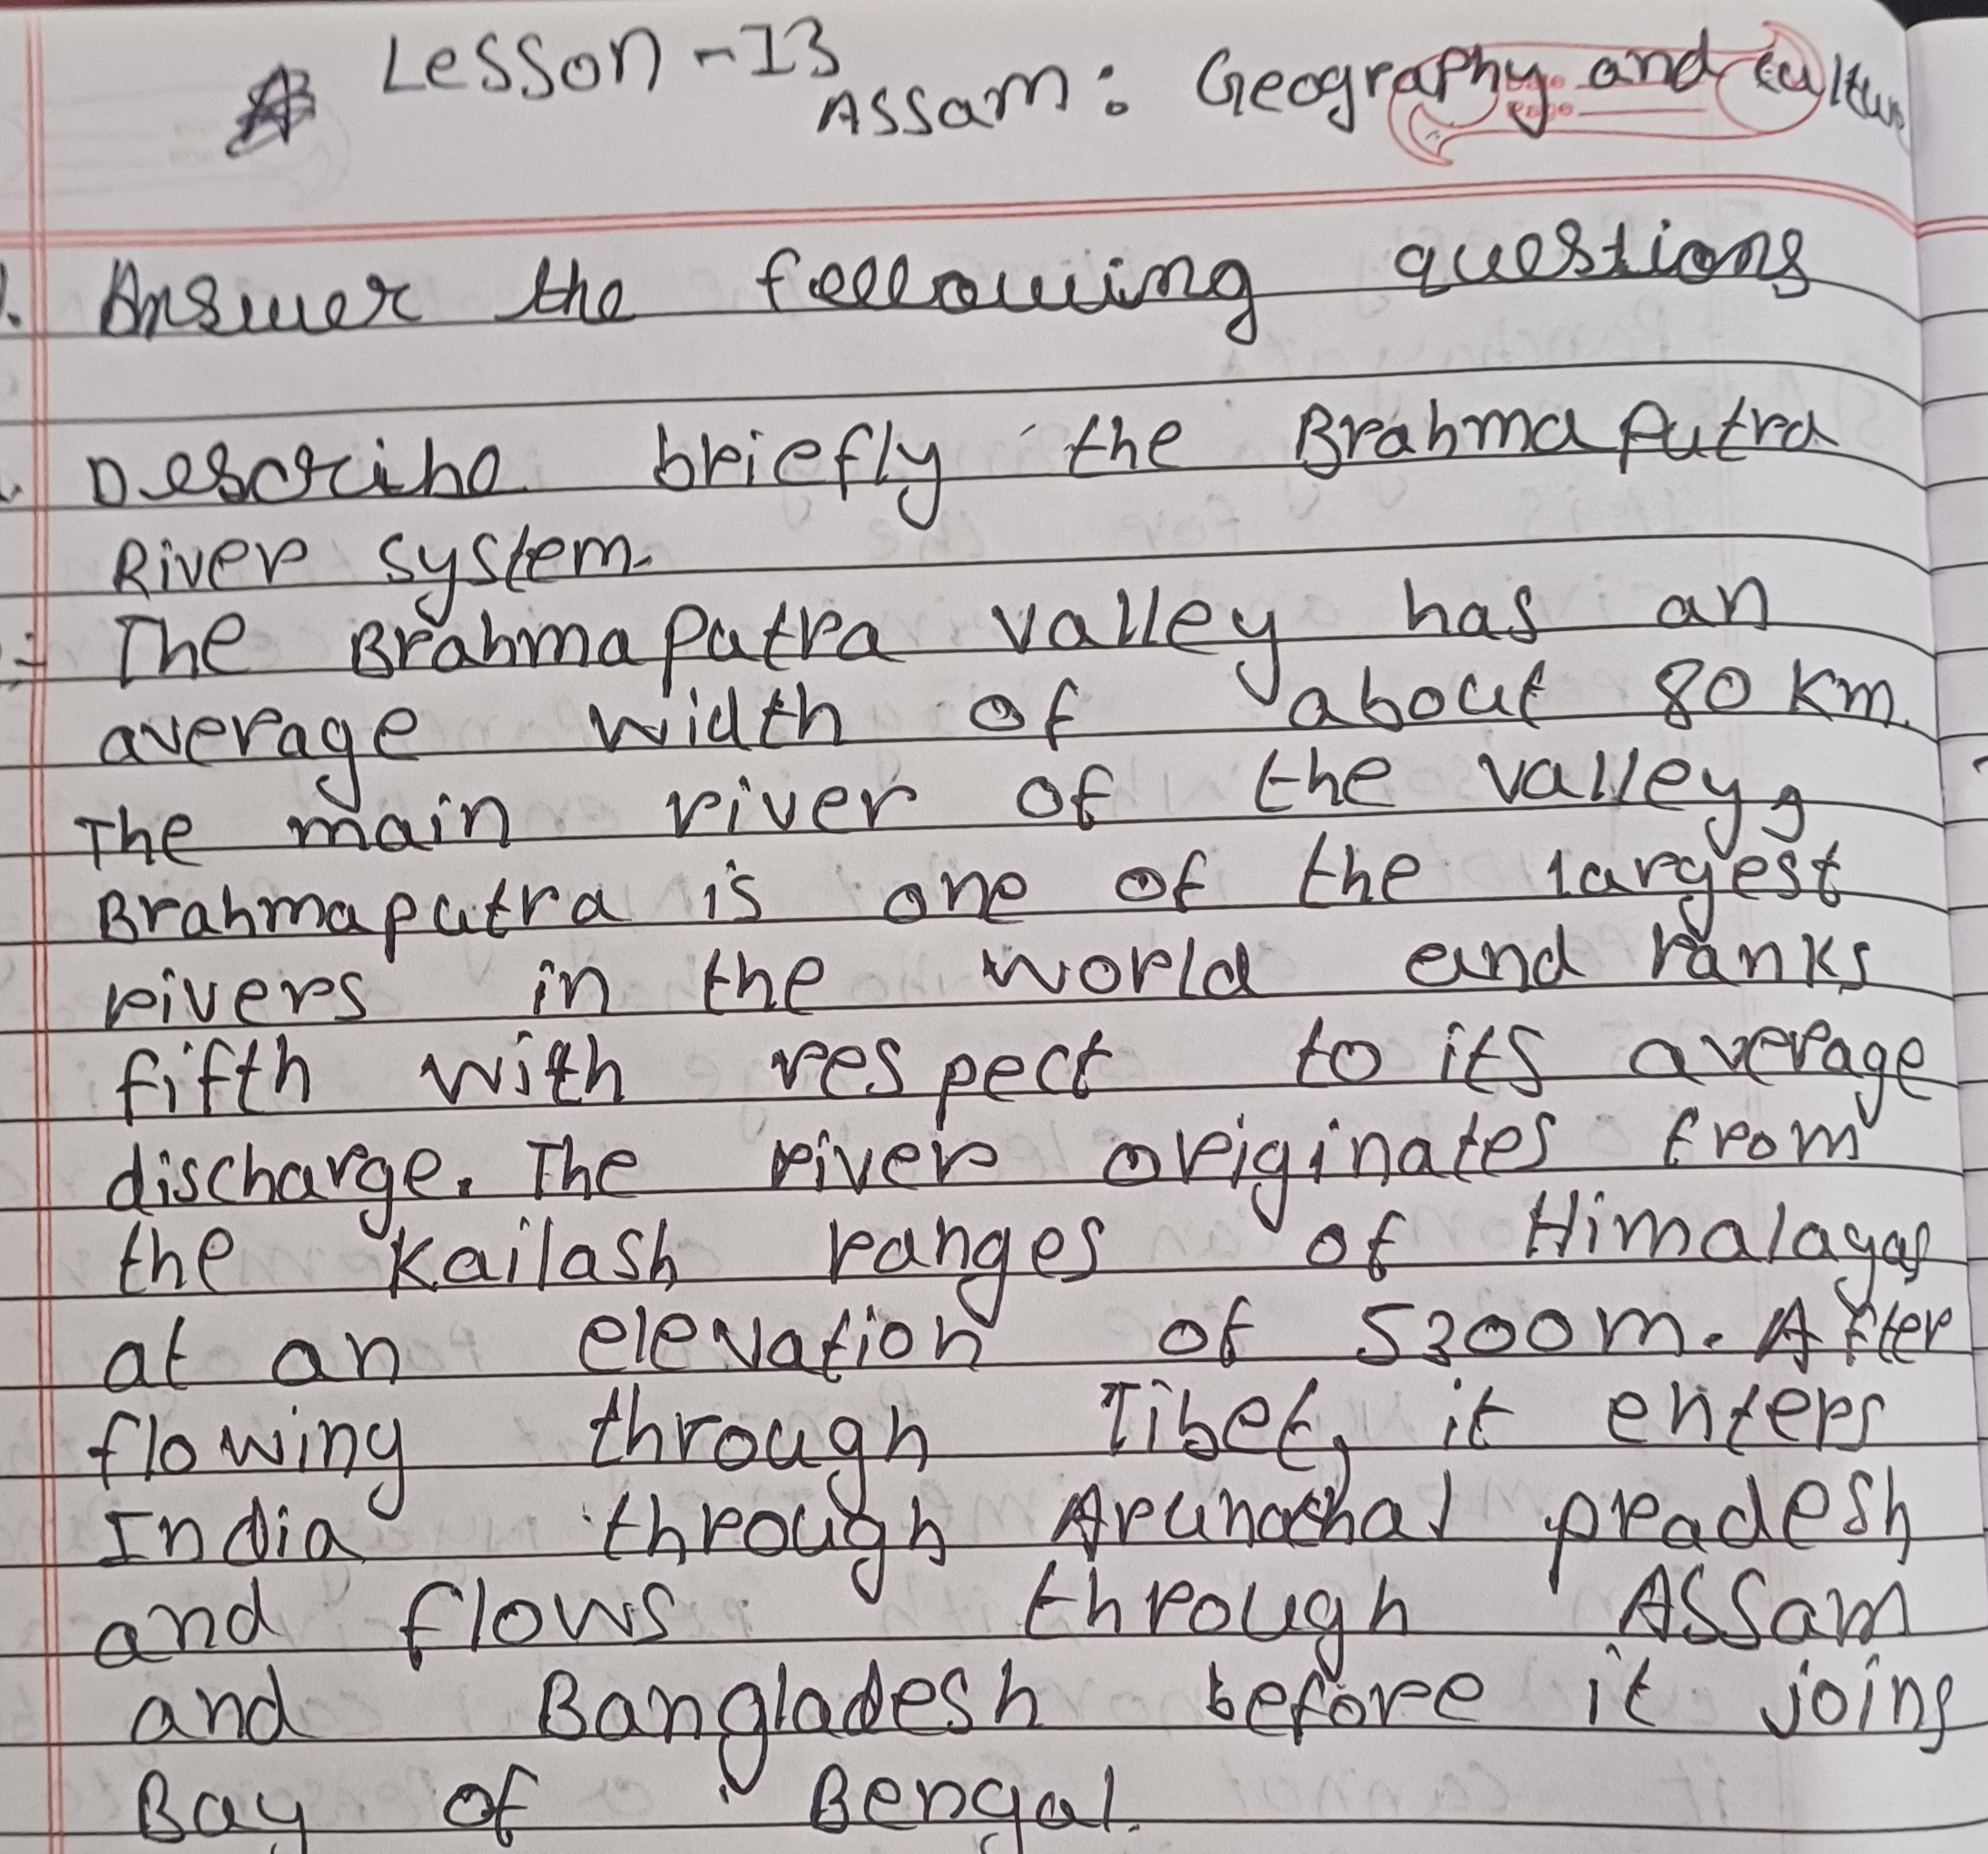 Lesson - 13
Assam: Geography and Culture
1. Answer the following questions
Describe briefly the Brahmaputra
River system.
The Brahmaputra valley has an
average width of about 80 km.
The main river of the valley,
Brahmaputra is one of the largest
rivers in the world and ranks
fifth with respect to its average
discharge. The river originates from
the Kailash ranges of Himalayas
at an elevation of 5300m. After
flowing through Tibet, it enters
India through Arunachal pradesh
and flows through Assam
and Bangladesh before it joins
Bay of Bengal.